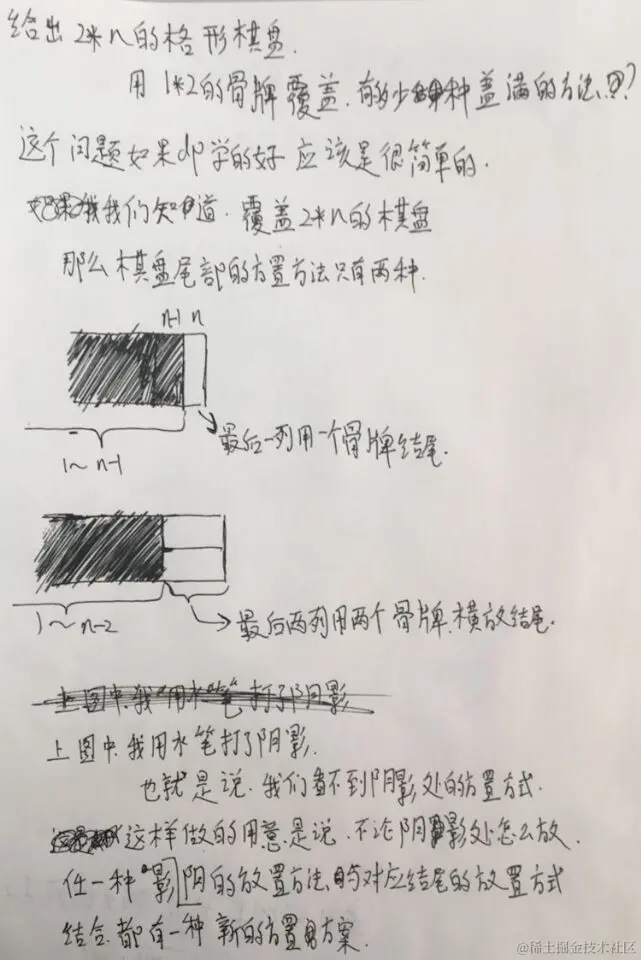 给出2*n的格形棋盘.
用1*2的骨牌覆盖.有多少种盖满的方法.?
这个问题如果dp学的好应该是很简单的.
我们知道.覆盖2*n的棋盘
那么棋盘尾部的放置方法只有两种.
n-1 n
最后一列用一个骨牌结尾.
1~n-1
1~n-2
最后两列用两个骨牌.横放结尾.
上图中.我"用水"笔"打了阴影
上图中.我用水笔打了阴影.
也就是说.我们看不到阴影处的放置方式.
这样做的用意是说.不论阴影处怎么放.
任一种"影阴的放置方法.与对应结尾的放置方式
结合.都有一种新的放置方案.
@稀土掘金技术社区